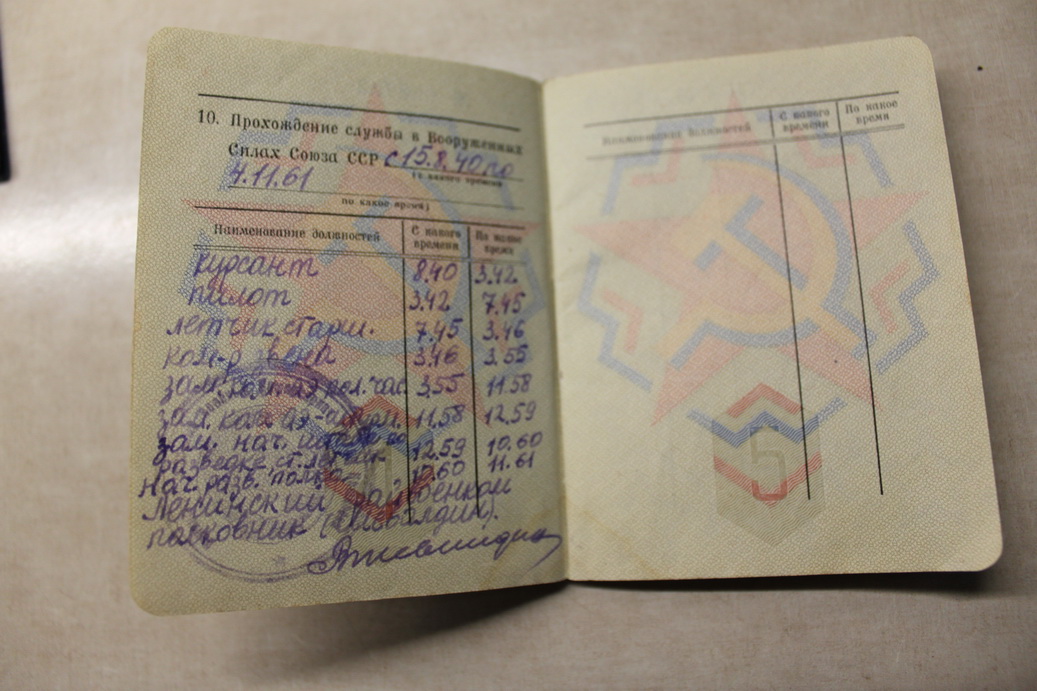 10. Прохождение службы в Вооруженных
Силах Союза ССР с 15.8.40 по
(с какого времени
4.11.61
по какое время)
Наименование должностей С какого времени По какое время
курсант 8.40 3.42
пилот 3.42 7.45
летчик старш. 7.45 3.46
ком-р звена 3.46 3.55
зам. 3.55 11.58
зам. ком. аэ- 11.58 12.59
зам. нач. штаба по 12.59 10.60
разведке, ст. летчик
нач. разв. полка 10.60 11.61
Ленинский райвоенком
полковник
Наименование должностей С какого времени По какое время
5